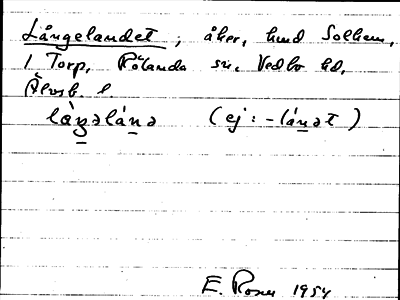 Långelandet ; åker, hmd Solhem,
1 Torp, Rölanda sn. Vedbo hd,
Älvsb. l
làŋəlánə (ej: -lánət)
E. Rosén 1954